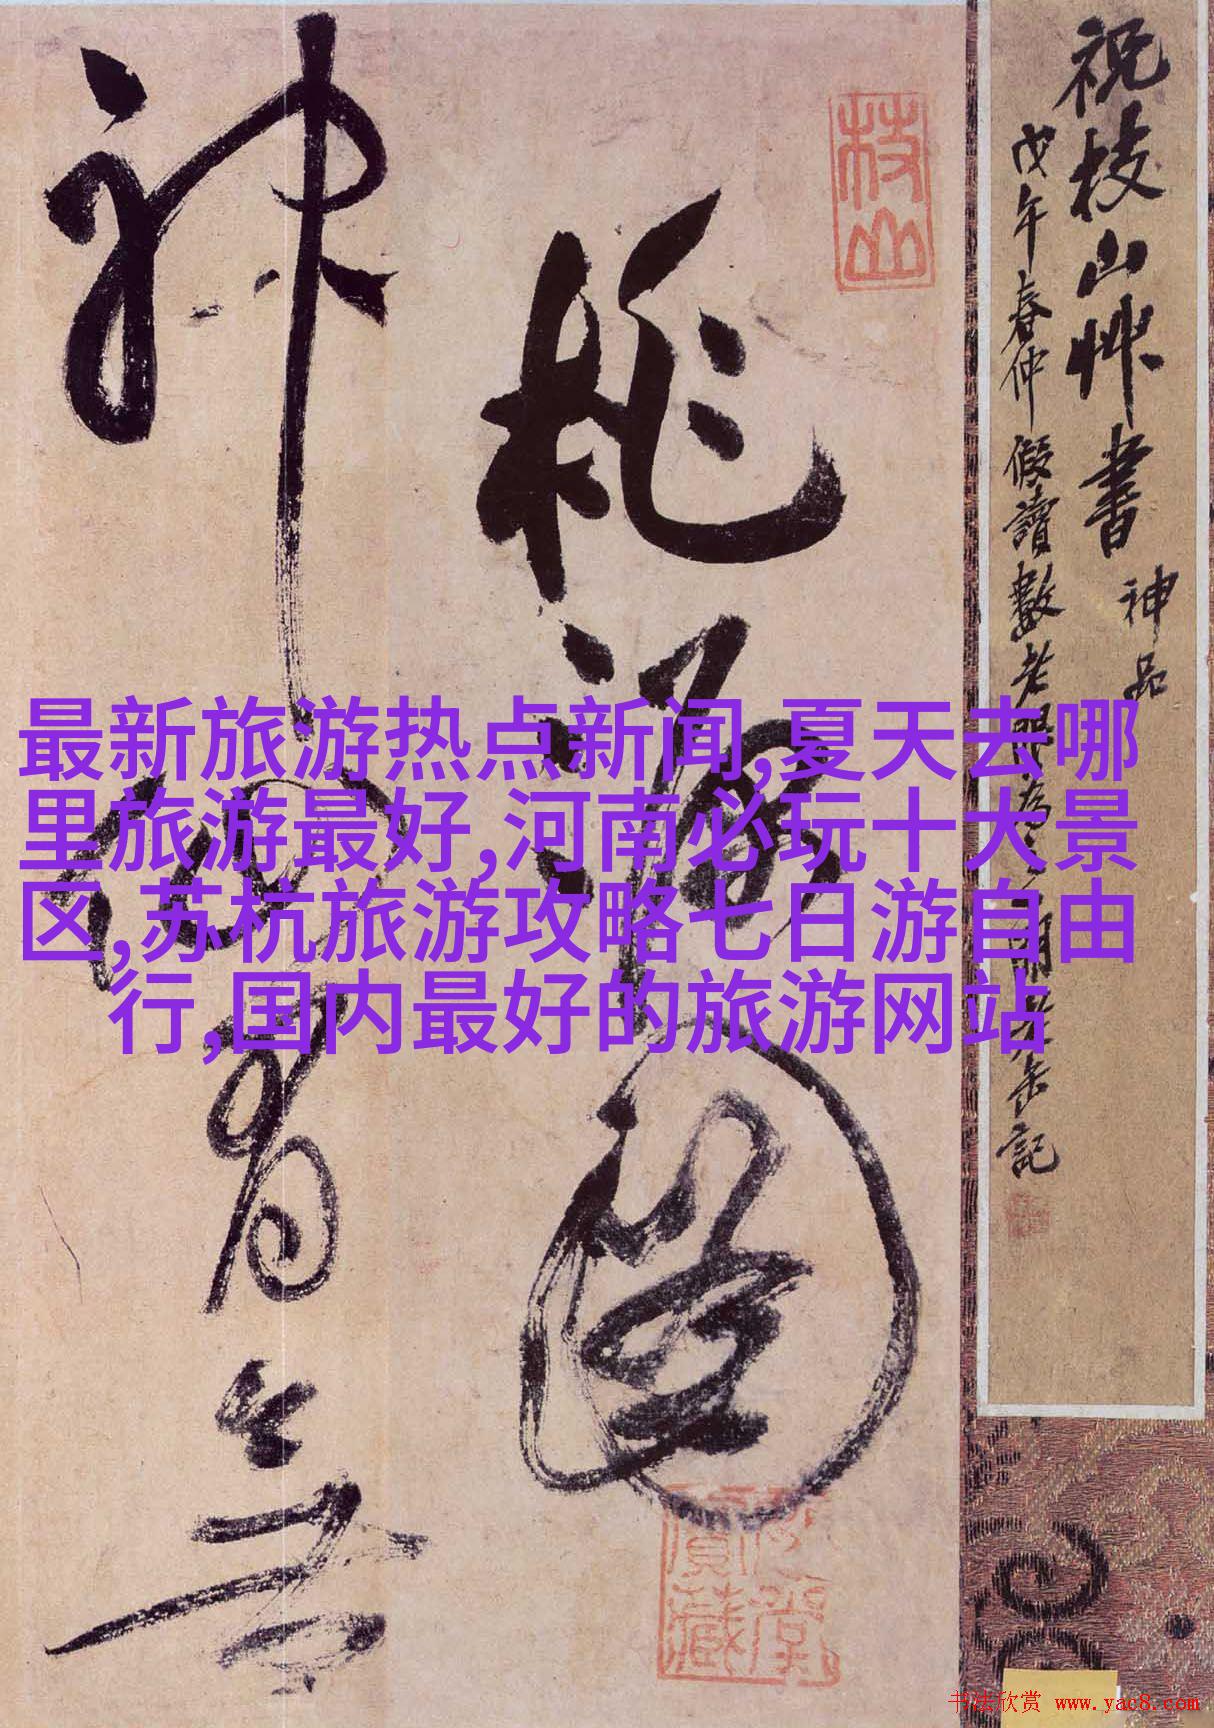 祝枝山艸書
神品
戊午春仲假讀數老
缶記
枝山
桃源圖
神仙有無
最新旅游热点新闻,夏天去哪
里旅游最好,河南必玩十大景
区,苏杭旅游攻略七日游自由
行,国内最好的旅游网站
书法欣赏 www.yac8.com